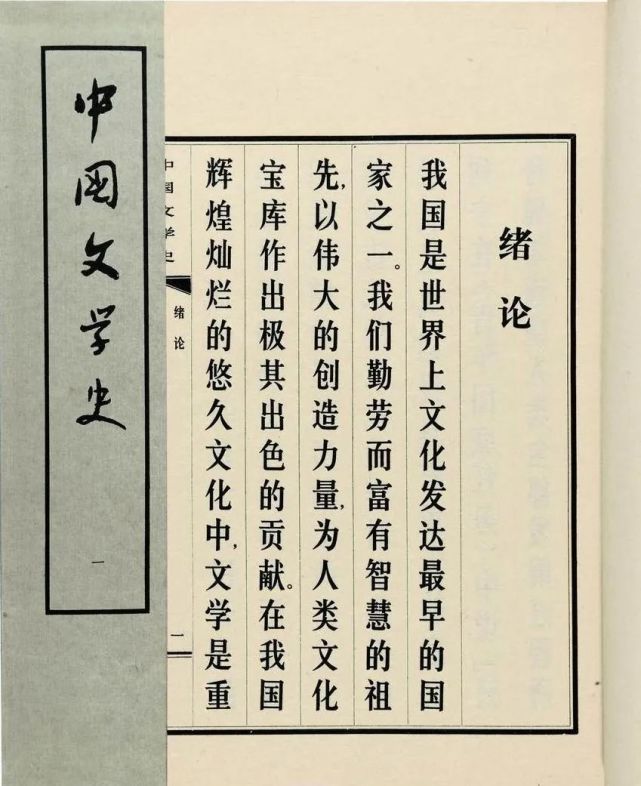 中国文学史
一
绪论
我国是世界上文化发达最早的国
家之一。我们勤劳而富有智慧的祖
先,以伟大的创造力量,为人类文化
宝库作出极其出色的贡献。在我国
辉煌灿烂的悠久文化中,文学是重
中国文学史
绪论
一